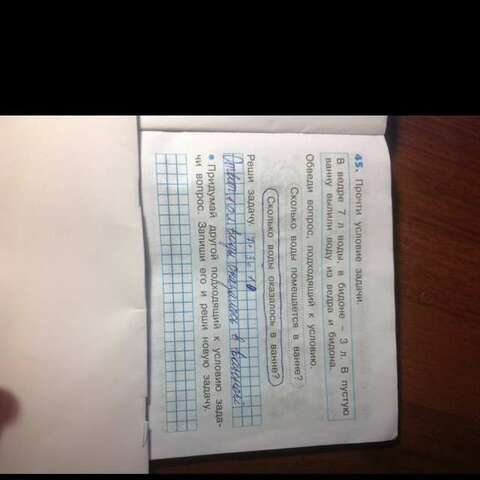 45. Прочти условие задачи.
В ведре 7 л воды, в бидоне – 3 л. В пустую
ванну вылили воду из ведра и бидона.
Обведи вопрос, подходящий к условию.
Сколько воды помещается в ванне?
Сколько воды оказалось в ванне?
Реши задачу. 7+3=10
воды оказалось в ванной
• Придумай другой подходящий к условию зада-
чи вопрос. Запиши его и реши новую задачу.